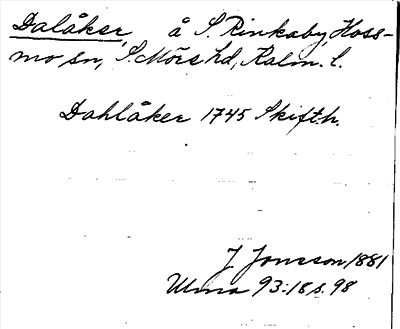 Dalåker, å S. Rinkaby, Hoss-
mo sn, S. Möre hd, Kalm. l.
Dahlåker 1745 Skifth.
J Jonsson 1881
Ulma 93:18 s. 98